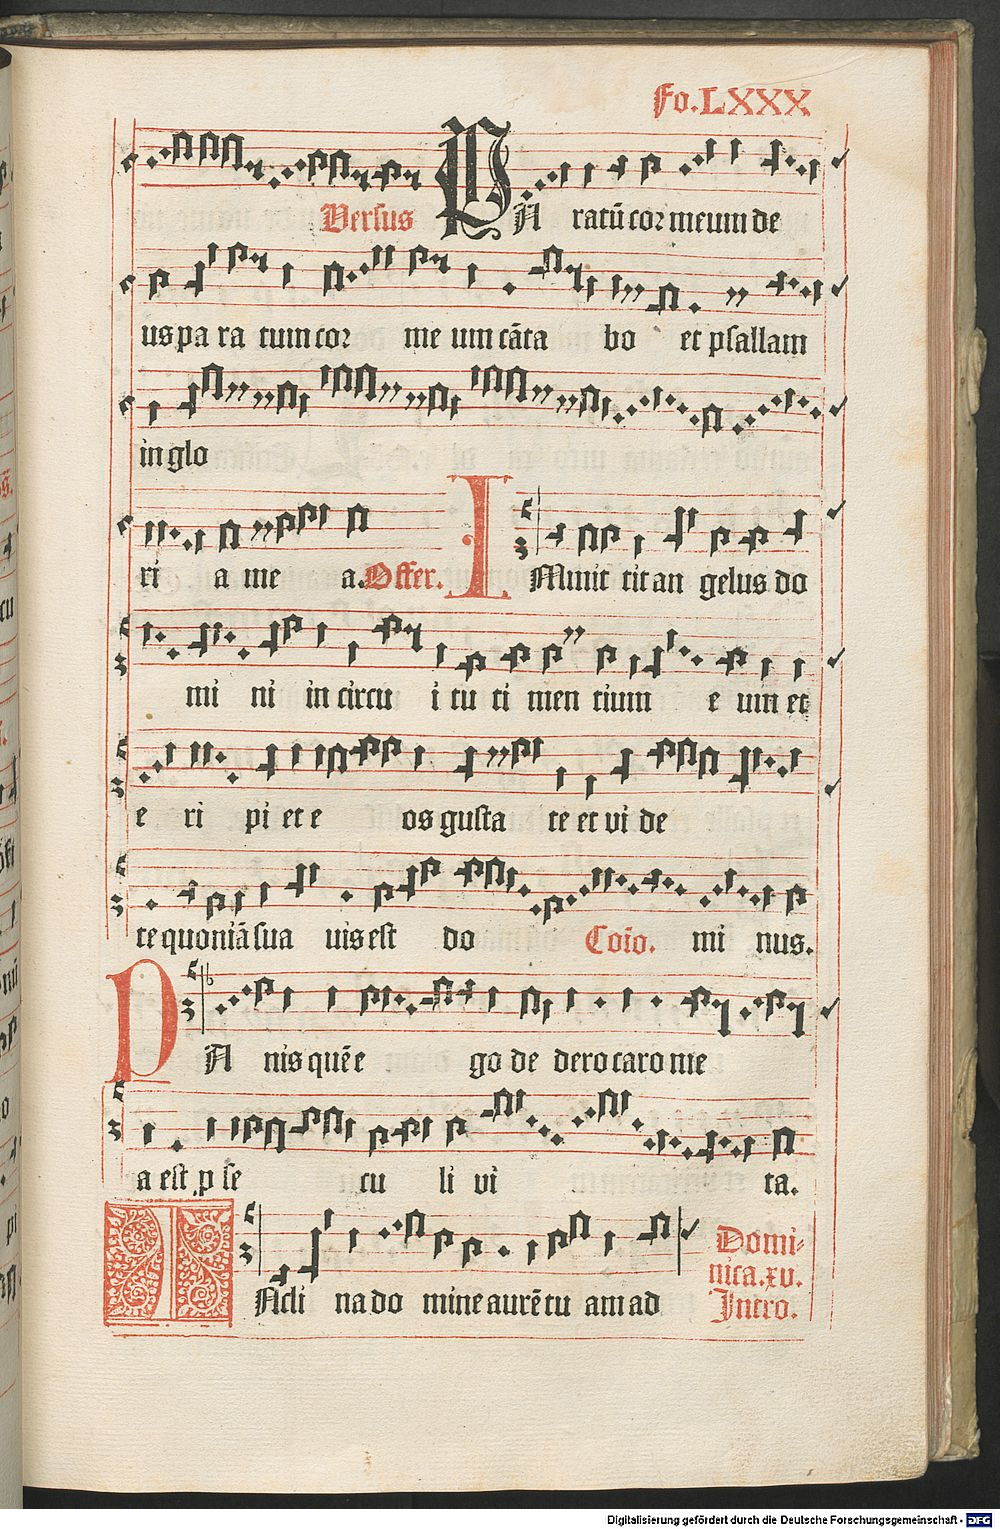 Fo.LXXX
Versus PA ratū cor meum de
us pa ra tum cor me um cāta bo et psallam
in glo
ri a me a. Offer. IMmit tit an gelus do
mi ni in circu i tu ti men tium e um et
e ri pi et e os gusta te et vi de
te quoniā sua vis est do Coīo. mi nus.
PA nis quē e go de dero caro me
a est p se cu li vi ta.
INcli na do mine aurē tu am ad Domi-
nica.xv.
Intro.
Digitalisierung gefördert durch die Deutsche Forschungsgemeinschaft - DFG